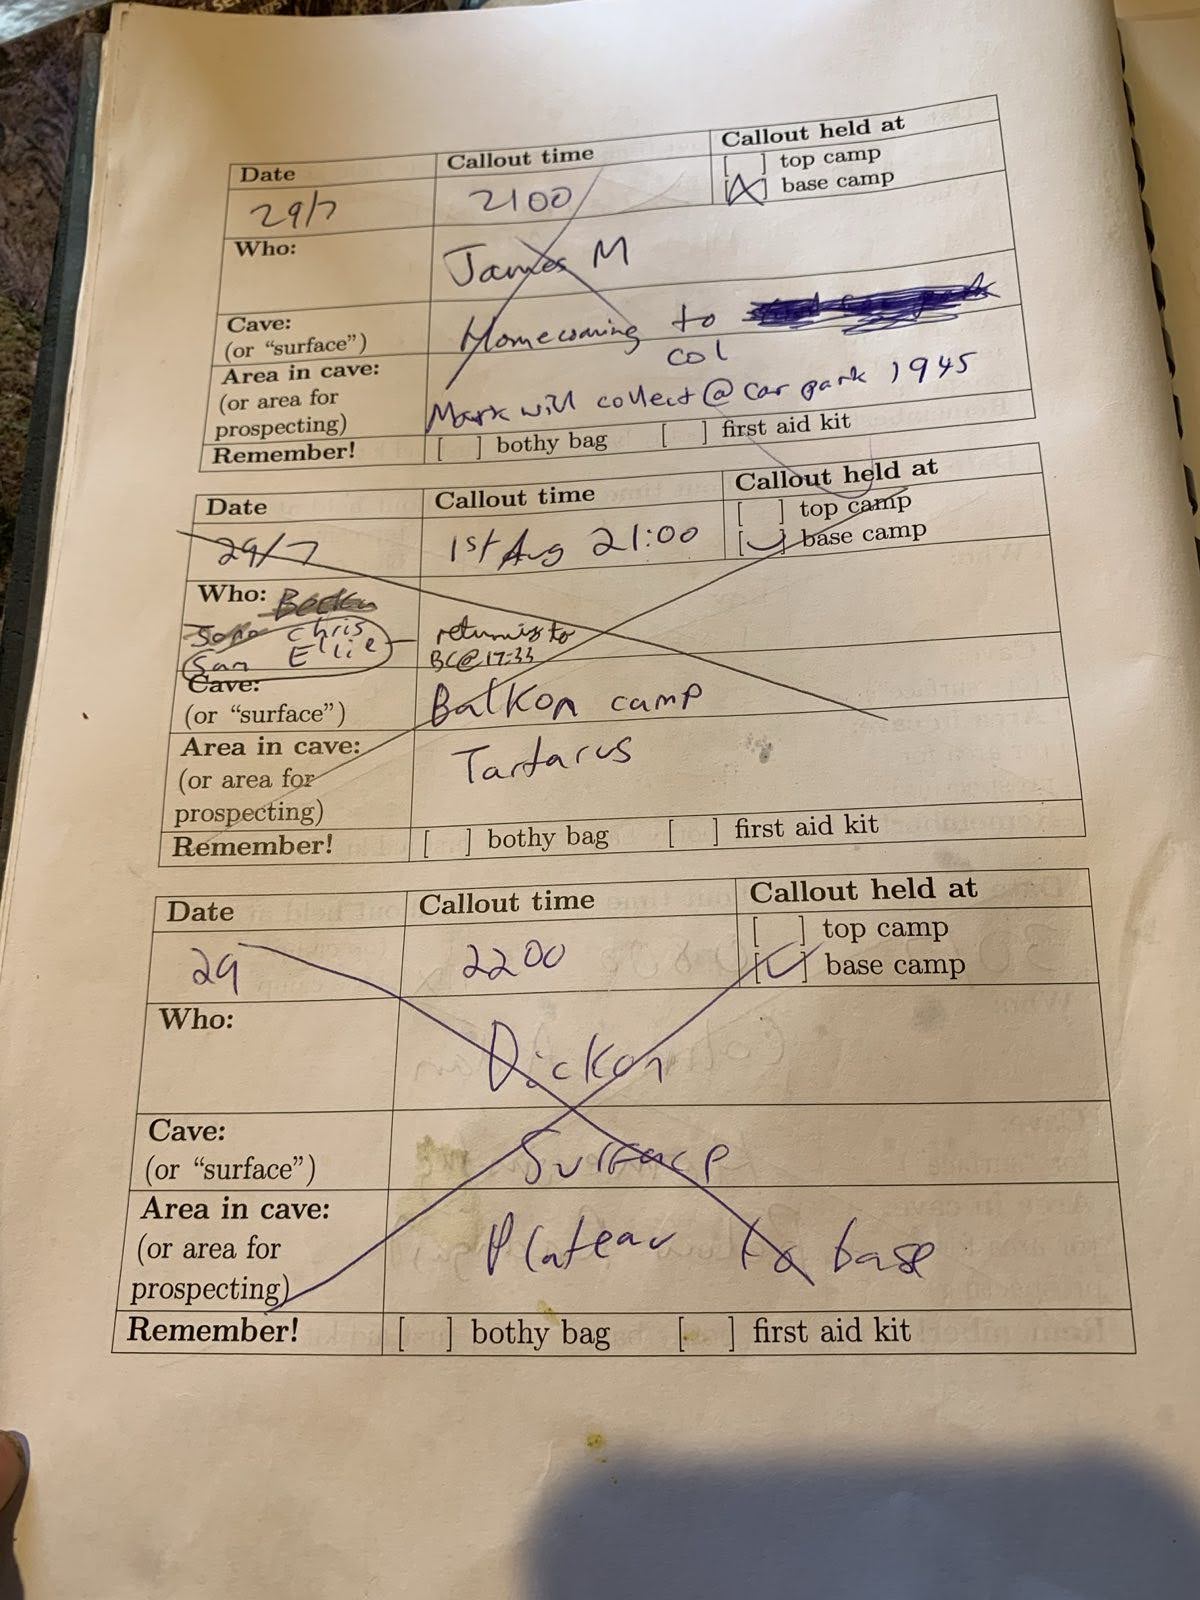 Date Callout time Callout held at
[ ] top camp
29/7 2100 [X] base camp
Who: James M
Cave: Homecoming to
(or “surface”) col
Area in cave:
(or area for Mark will collect @ car park 1945
prospecting)
Remember! [ ] bothy bag [ ] first aid kit
Date Callout time Callout held at
[ ] top camp
29/7 1st Aug 21:00 [✓] base camp
Who:
Chris returning to
Sam Ellie BC@17:33
Cave: Balkon camp
(or “surface”)
Area in cave: Tartarus
(or area for
prospecting)
Remember! [ ] bothy bag [ ] first aid kit
Date Callout time Callout held at
[ ] top camp
29 2200 [✓] base camp
Who: Dickon
Cave: Surface
(or “surface”)
Area in cave:
(or area for Plateau to base
prospecting)
Remember! [ ] bothy bag [ ] first aid kit